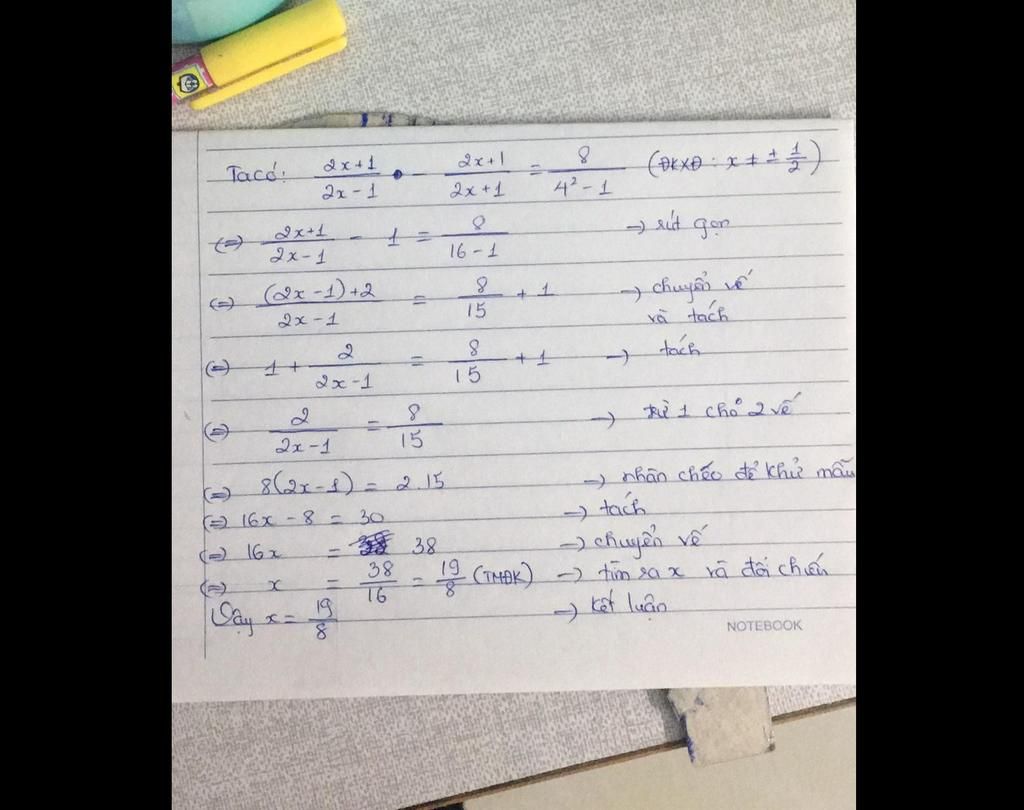 Ta có: (2x+1)/(2x-1) - (2x+1)/(2x+1) = 8/(4²-1) (ĐKXĐ: x ≠ ± 1/2)
(=) (2x+1)/(2x-1) - 1 = 8/(16-1) → rút gọn
(=) ((2x-1)+2)/(2x-1) = 8/15 + 1 → chuyển vế và tách
(=) 1 + 2/(2x-1) = 8/15 + 1 → tách
(=) 2/(2x-1) = 8/15 → trừ 1 cho 2 vế
(=) 8(2x-1) = 2.15 → nhân chéo để khử mẫu
(=) 16x - 8 = 30 → tách
(=) 16x = 38 → chuyển vế
(=) x = 38/16 = 19/8 (TMĐK) → tìm ra x và đối chiếu
Vậy x = 19/8 → kết luận
NOTEBOOK